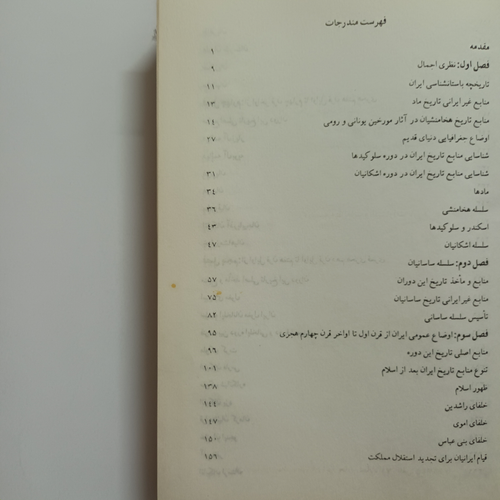 فهرست مندرجات
مقدمه ۱
فصل اول: نظری اجمال ۹
تاریخچه باستانشناسی ایران ۱۱
منابع غیر ایرانی تاریخ ماد ۱۳
منابع تاریخ هخامنشیان در آثار مورخین یونانی و رومی ۱۴
اوضاع جغرافیایی دنیای قدیم ۲۷
شناسایی منابع تاریخ ایران در دوره سلوکیدها
شناسایی منابع تاریخ ایران در دوره اشکانیان ۳۱
مادها ۳۴
سلسله هخامنشی ۳۶
اسکندر و سلوکیدها ۴۳
سلسله اشکانیان ۴۷
فصل دوم: سلسله ساسانیان
منابع و مأخذ تاریخ این دوران ۵۷
منابع غیر ایرانی تاریخ ساسانیان ۷۵
تأسیس سلسله ساسانی ۸۲
فصل سوم: اوضاع عمومی ایران از قرن اول تا اواخر قرن چهارم هجری ۹۵
منابع اصلی تاریخ این دوره ۹۶
تنوع منابع تاریخ ایران بعد از اسلام ۱۰۱
ظهور اسلام ۱۳۸
خلفای راشدین ۱۴۴
خلفای اموی ۱۴۷
خلفای بنی عباس ۱۵۰
قیام ایرانیان برای تجدید استقلال مملکت ۱۵۹